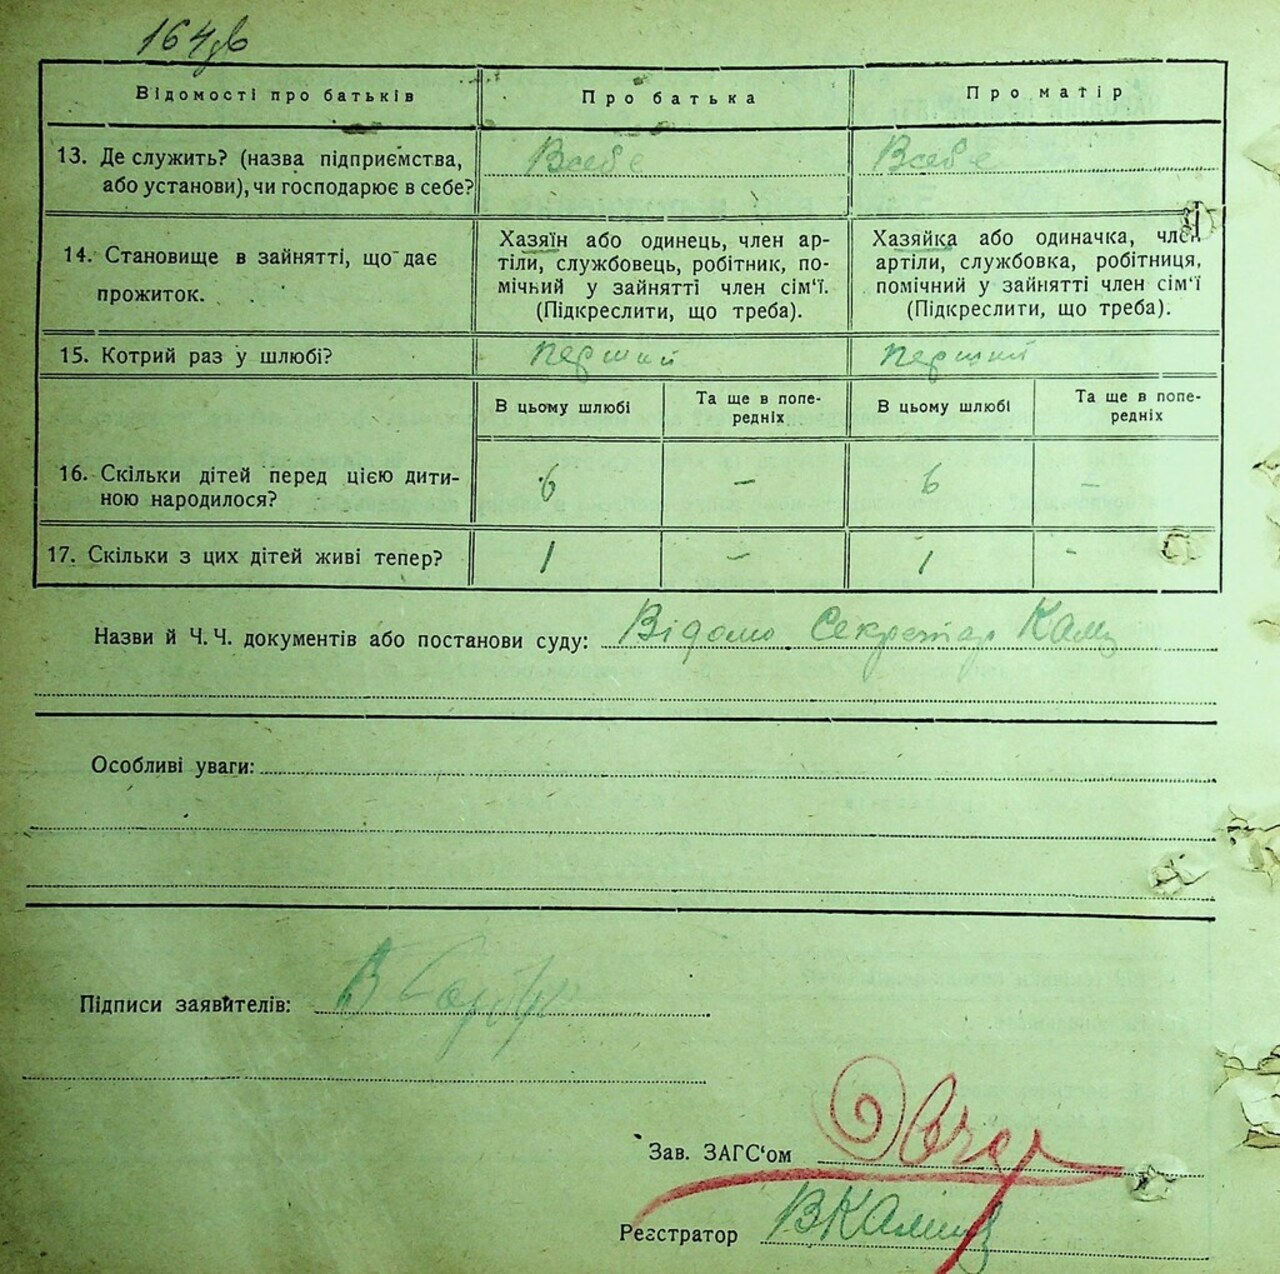 164
Відомості про батьків
Про батька
Про матір
13. Де служить? (назва підприємства,
або установи), чи господарює в себе?
Всебе
Всебе
14. Становище в зайнятті, що дає
прожиток.
Хазяїн або одинець, член ар-
тілі, службовець, робітник, по-
мічний у зайнятті член сім‘ї.
(Підкреслити, що треба).
Хазяйка або одиначка, член
артілі, службовка, робітниця,
помічний у зайнятті член сім‘ї
(Підкреслити, що треба).
15. Котрий раз у шлюбі?
перший
перший
В цьому шлюбі
Та ще в попе-
редніх
В цьому шлюбі
Та ще в попе-
редніх
16. Скільки дітей перед цією дити-
ною народилося?
6
–
6
–
17. Скільки з цих дітей живі тепер?
1
–
1
-
Назви й Ч. Ч. документів або постанови суду: Відомо Секретар
Особливі уваги:
Підписи заявителів: В
Зав. ЗАГС‘ом
Реєстратор